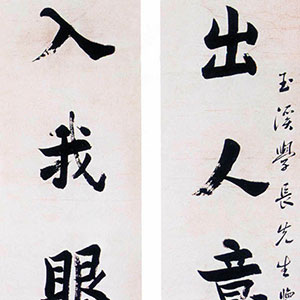 玉溪學長先生臨
出人意
入我眼